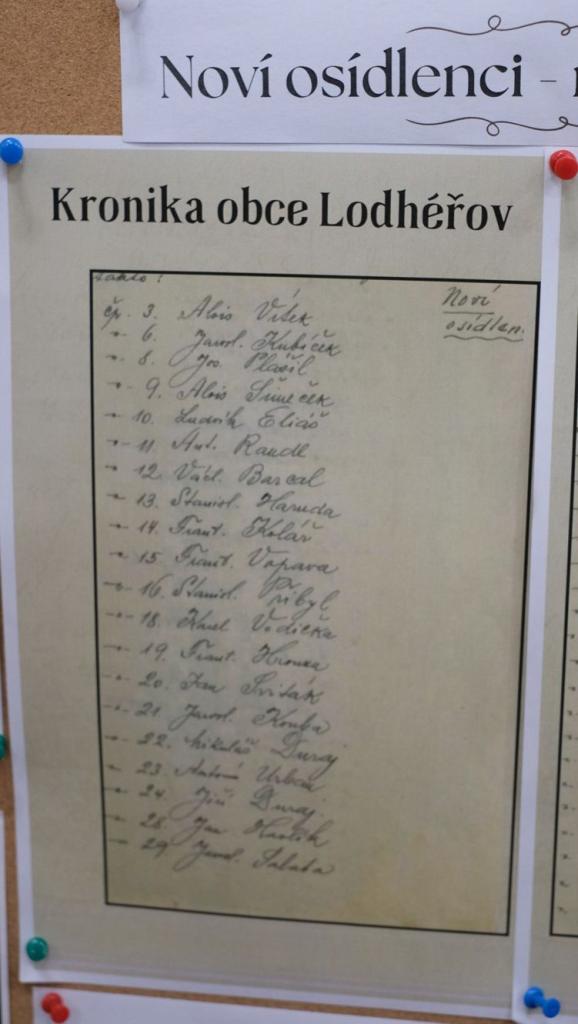 Noví osídlenci –
Kronika obce Lodhéřov
takto:
Noví
osídlen.
čp. 3. Alois Vítek
" 6. Jarosl. Kubíček
" 8. Jos. Plašil
" 9. Alois Šimeček
" 10. Ludvík Eliáš
" 11. Ant. Randl
" 12. Václ. Barcal
" 13. Stanisl. Haruda
" 14. Frant. Kolář
" 15. Frant. Vopava
" 16. Stanisl. Přibyl
" 18. Karel Vodička
" 19. Frant. Hronza
" 20. Jan Sviták
" 21. Jarosl. Kouba
" 22. Mikuláš Duraj
" 23. Antonín Urban
" 24. Jiří Duraj
" 28. Jan Havlík
" 29 Jarosl. Salaba